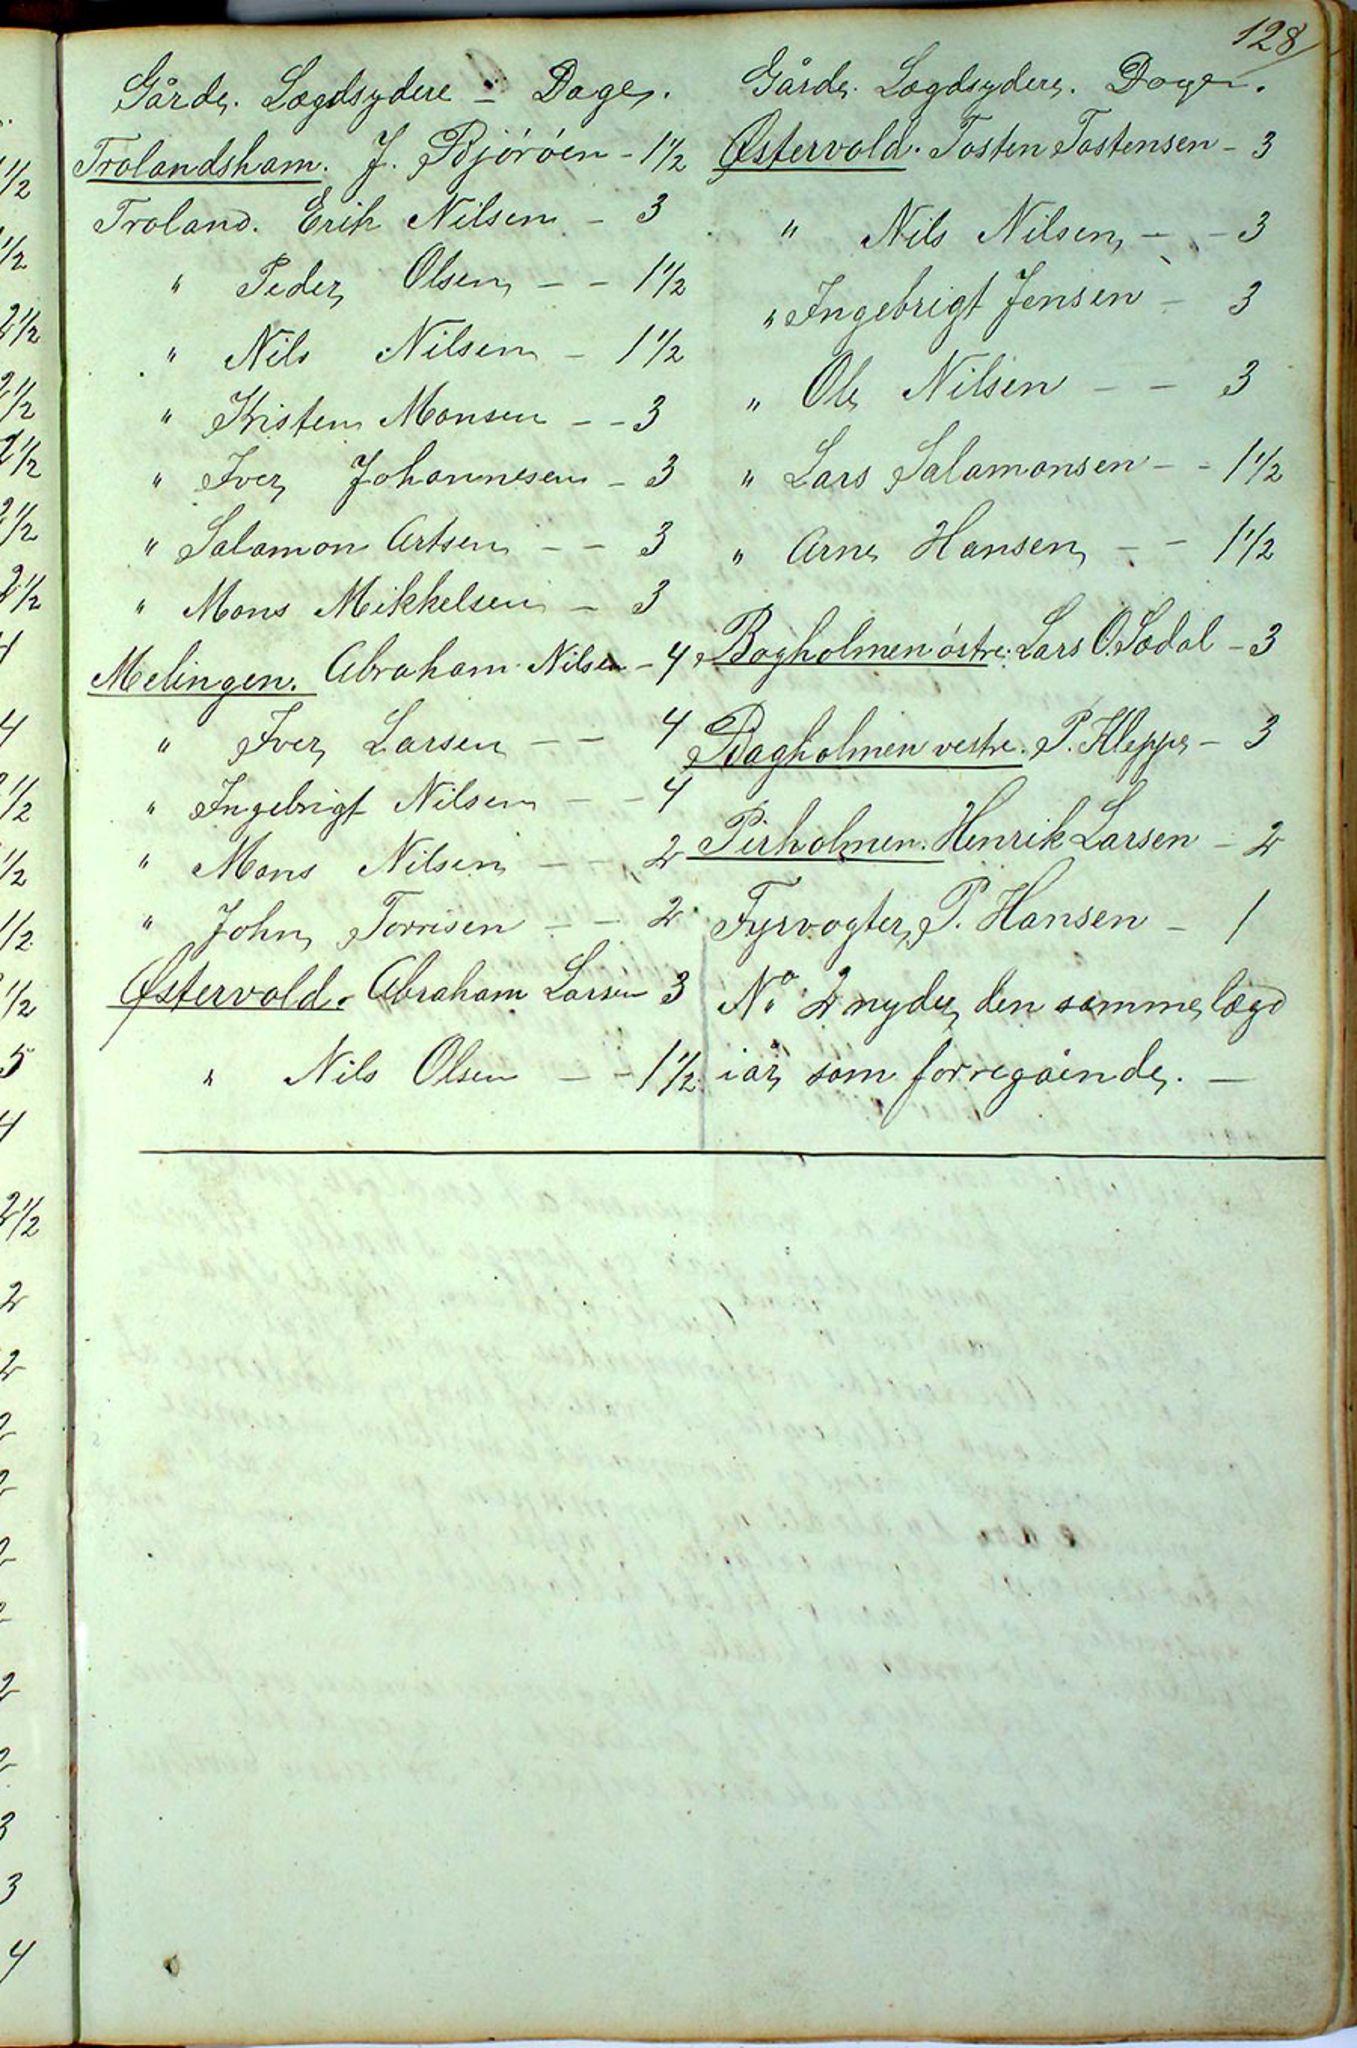 128
Gårde. Lægdsydere - Dage.
Trolandsham. J. Björöen - 1 1/2
Troland. Erik Nilsen - 3
" Peder Olsen - - 1 1/2
" Nils Nilsen - 1 1/2
" Kristen Monsen - - 3
" Iver Johannesen - 3
" Salamon Artsen - - 3
" Mons Mikkelsen - 3
Melingen. Abraham Nilsen - 4
" Iver Larsen - - 4
" Ingebrigt Nilsen - - 4
" Mons Nilsen - - 2
" John Torrisen - - 2
Østervold. Abraham Larsen 3
" Nils Olsen - - 1 1/2
Gårde. Lægdsydere. Dage.
Østervold. Tosten Tostensen - 3
" Nils Nilsen - - 3
" Ingebrigt Jensen - 3
" Ole Nilsen - - 3
" Lars Salamonsen - - 1 1/2
" Arne Hansen - - 1 1/2
Bogholmen östre. Lars O. Sodal - 3
Bagholmen vestre. P. Kleppe - 3
Pirholmen. Henrik Larsen - 2
Fyrvogter P. Hansen - 1
No 2 nyder den samme lægd
iår som forregående. -